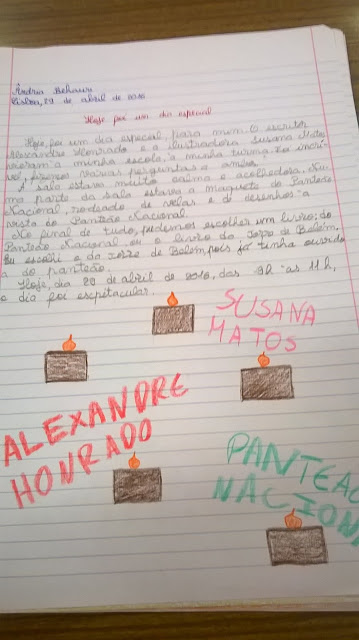 Andrea Behauu
Lisboa, 29 de abril de 2016
Hoje foi um dia especial
Hoje, foi um dia especial para mim. O escritor
Alexandre Honrado e a ilustradora Susana Matos
vieram à minha escola, à minha turma. Foi incrí-
vel, fizemos várias perguntas a ambos.
A sala estava muito calma e acolhedora. Nu-
ma parte da sala estava a maquete do Panteão
Nacional, rodeado de velas e de desenhos à
vista do Panteão Nacional.
No final de tudo, podemos escolher um livro: do
Panteão Nacional ou o livro da Torre de Belém,
Eu escolhi o da Torre de Belém, pois já tinha ouvido
o do panteão.
Hoje, dia 29 de abril de 2016, das 9h às 11h,
o dia foi espetacular.
SUSANA
MATOS
ALEXANDRE
HONRADO
PANTEAO
NACIONA